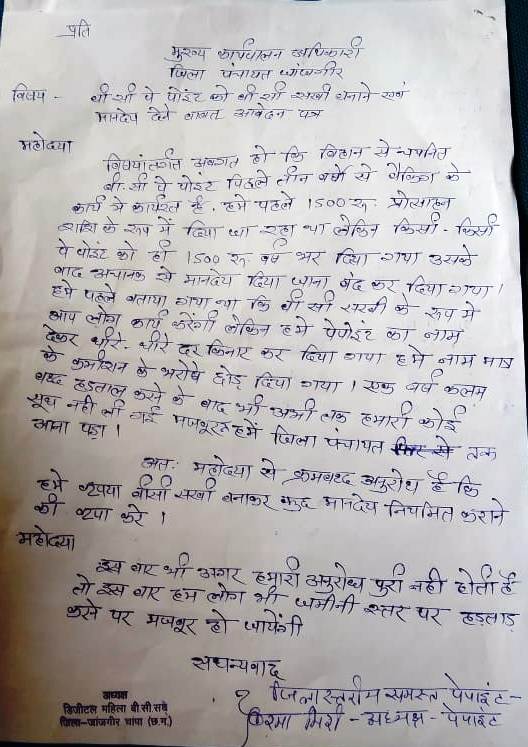 प्रति
मुख्य कार्यपालन अधिकारी
जिला पंचायत जांजगीर
विषय - बी सी पे पोइंट को बी सी सखी बनाने एवं
मानदेय देने बाबत आवेदन पत्र
महोदया
विषयांतर्गत अवगत हो कि बिहान से चयनित
बी.सी पे पोइंट पिछले तीन वर्षो से बैकिंग के
कार्य मे कार्यरत है. हमे पहले 1500 रू. प्रोत्साहन
राशि के रूप में दिया जा रहा था लेकिन किसी - किसी
पे पोइंट को ही 1500 रू वर्ष भर दिया गया उसके
बाद अचानक से मानदेय दिया जाना बंद कर दिया गया।
हमे पहले बताया गया था कि बी सी सखी के रूप मे
आप लोग कार्य करेंगी लेकिन हमे पेपोइंट का नाम
देकर धीरे-धीरे दर किनार कर दिया गया हमे नाम मात्र
के कमीशन के भरोषे छोड़ दिया गया। एक वर्ष कलम
बन्द हड़ताल करने के बाद भी अभी तक हमारी कोई
सूध नही ली गई मजबूरन हमें जिला पंचायत तक
आना पड़ा।
अतः महोदया से क्रमबध्द अनुरोध है कि
हमे कृपया बीसी सखी बनाकर कुछ मानदेय नियमित कराने
की कृपा करे।
महोदया
इस बार भी अगर हमारी अनुरोध पुरी नही होती है
तो इस बार हम लोग भी जमीनी स्तर पर हड़ताड़
करने पर मजबूर हो जायेंगी
सधन्यवाद
जिला स्तरीय समस्त पेपाइंट-
- अध्यक्ष - पेपाइंट
अध्यक्ष
डिजीटल महिला बी सी सखे
जिला-जांजगीर चांपा (छ.ग.)